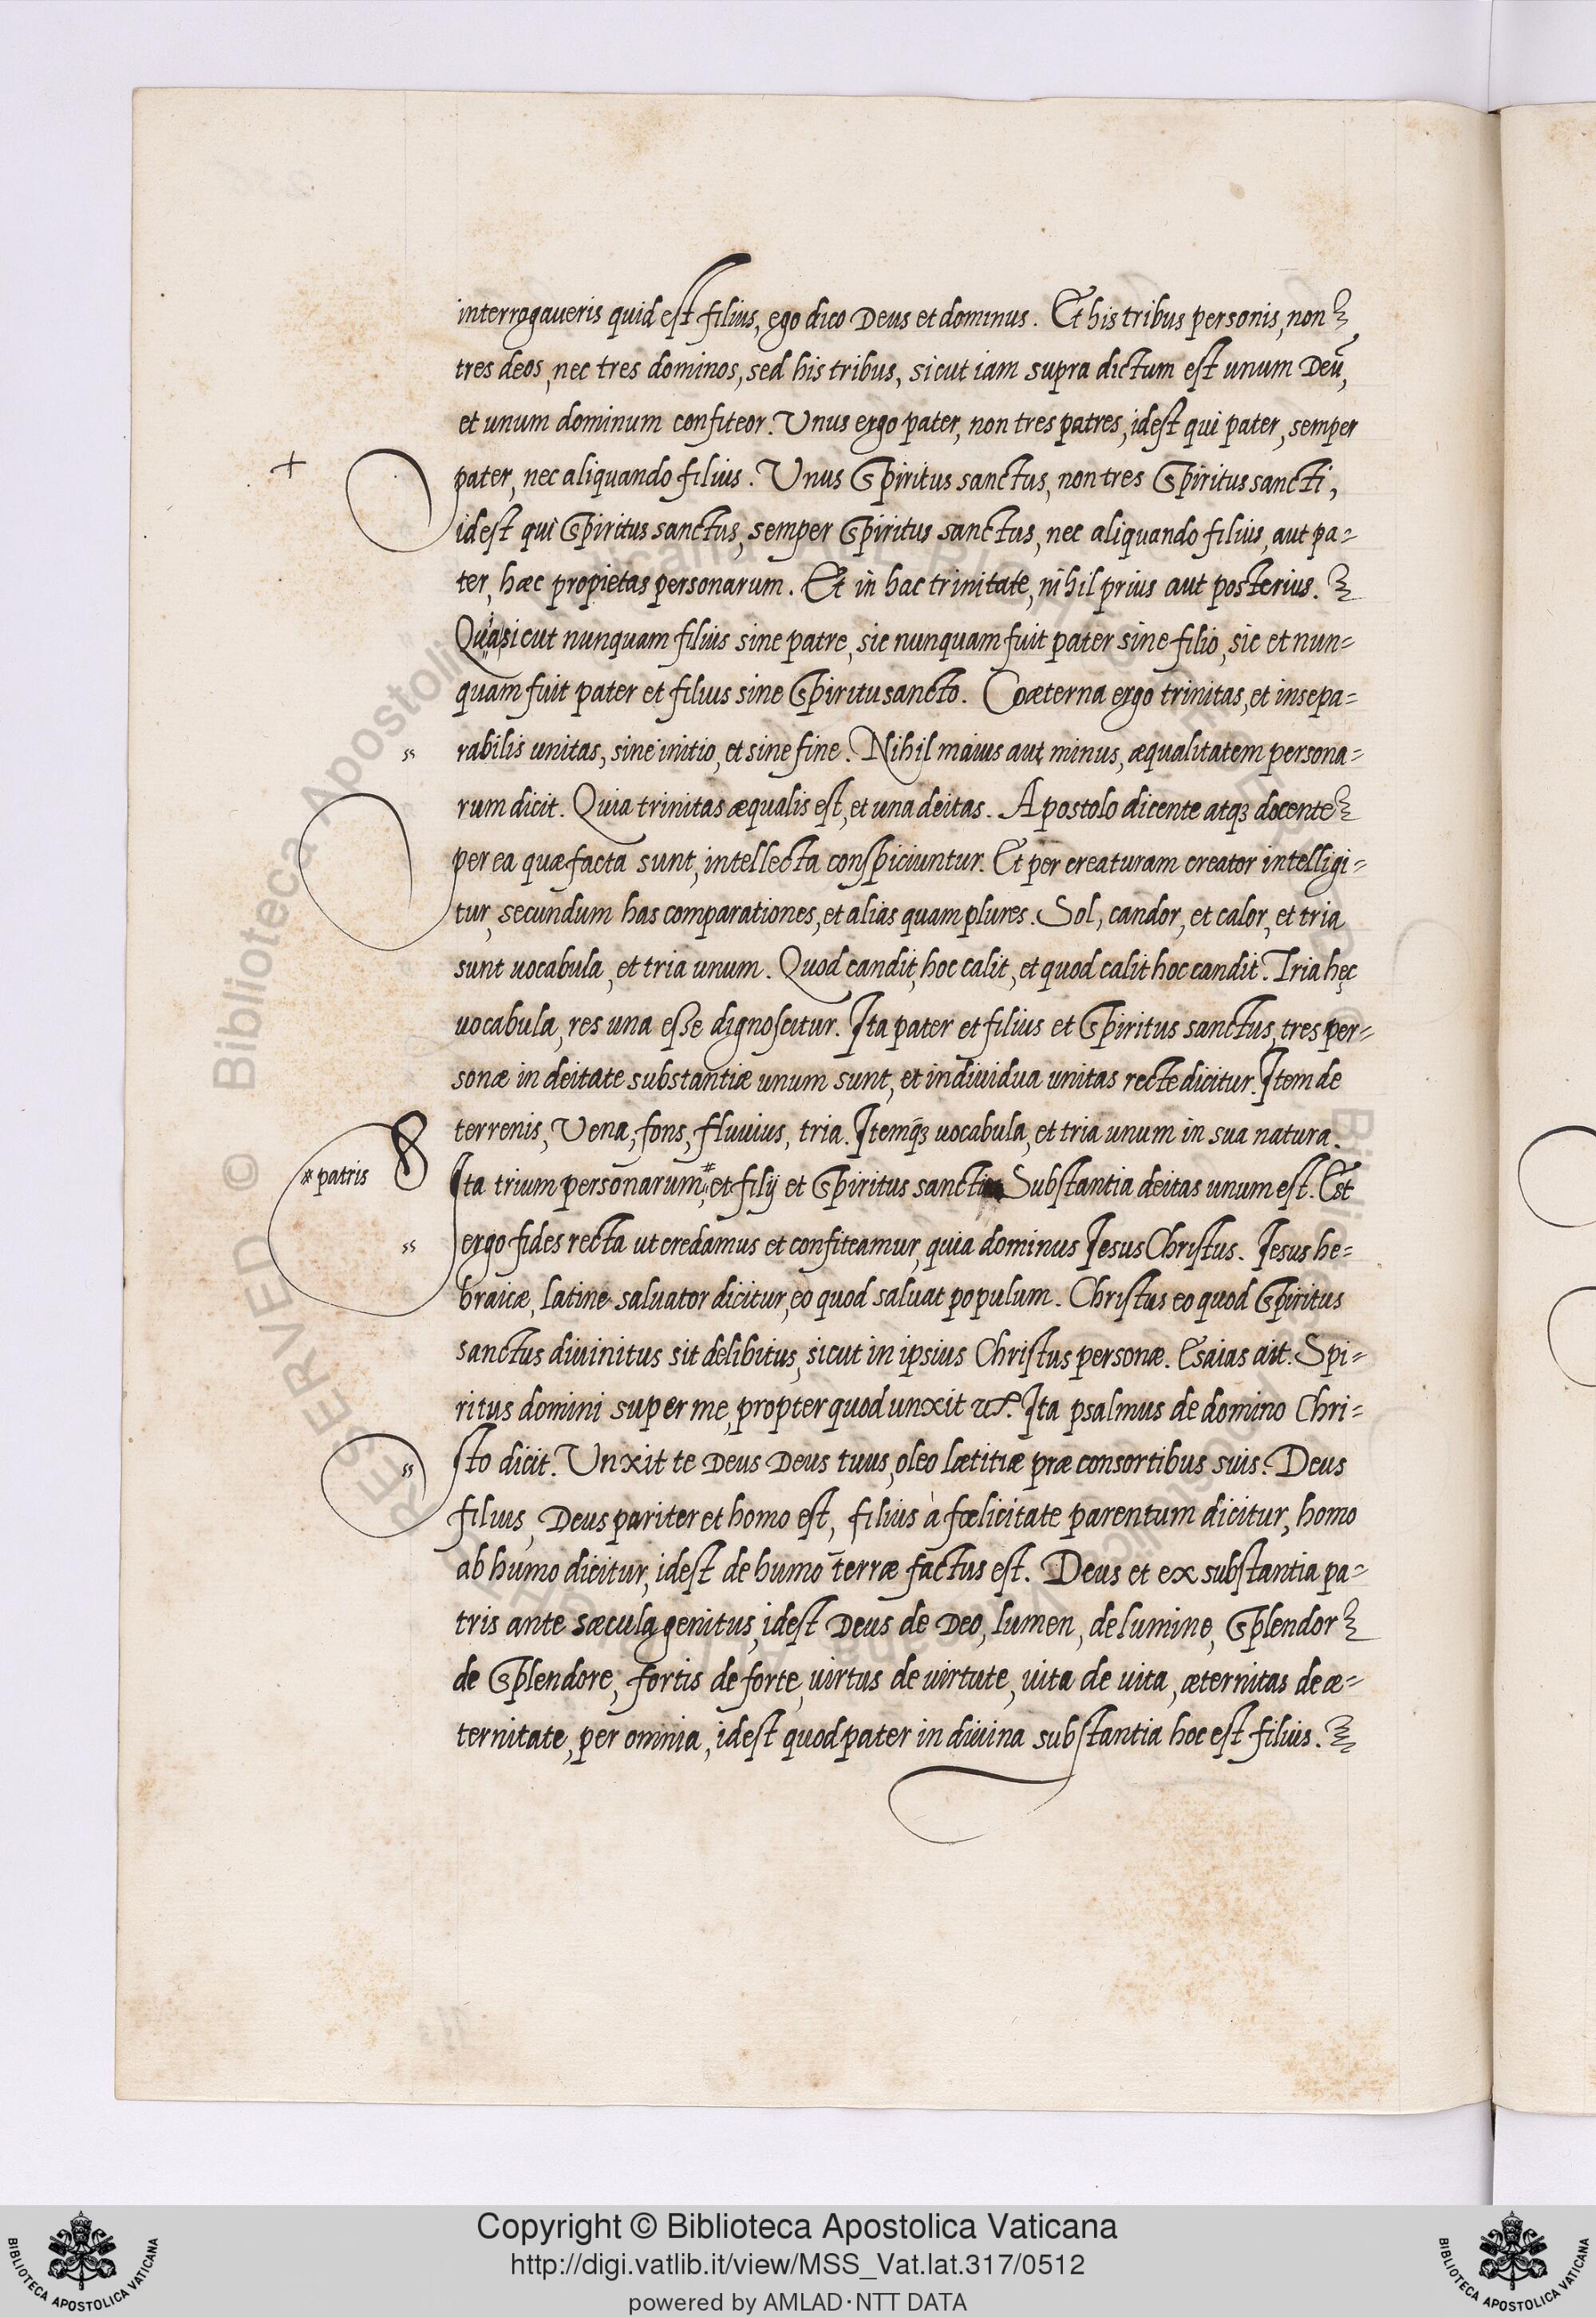 interrogaueris quid est filius, ego dico Deus et dominus. Et his tribus personis, non
tres deos, nec tres dominos, sed his tribus, sicut iam supra dictum est unum Deũ,
et unum dominum confiteor. Unus ergo pater, non tres patres, idest qui pater, semper
+ pater, nec aliquando filius. Unus Spiritus sanctus, non tres Spiritus sancti,
idest qui Spiritus sanctus, semper Spiritus sanctus, nec aliquando filius, aut pa=
ter, hæc propietas personarum. Et in hac trinitate, nihil prius aut posterius.
sicut nunquam filius sine patre, sic nunquam fuit pater sine filio, sic et nun=
quam fuit pater et filius sine Spiritu sancto. Coæterna ergo trinitas, et insepa=
rabilis unitas, sine initio, et sine fine. Nihil maius aut minus, æqualitatem persona=
rum dicit. Quia trinitas æqualis est, et una deitas. Apostolo dicente atqꝫ docente
per ea quæ facta sunt, intellecta conspiciuntur. Et per creaturam creator intelligi=
tur, secundum has comparationes, et alias quam plures. Sol, candor, et calor, et tria
sunt uocabula, et tria unum. Quod candit, hoc calit, et quod calit hoc candit. Tria hęc
uocabula, res una esse dignoscitur. Ita pater et filius et Spiritus sanctus, tres per=
sonæ in deitate substantiæ unum sunt, et indiuidua unitas recte dicitur. Item de
terrenis, Vena, fons, fluuius, tria. Itemq́ꝫ uocabula, et tria unum in sua natura.
* patris
Ita trium personarum,* et filij et Spiritus sancti Substantia deitas unum est. Est
ergo fides recta ut credamus et confiteamur, quia dominus Iesus Christus. Iesus he=
braicæ, latine saluator dicitur, eo quod saluat populum. Christus eo quod Spiritus
sanctus diuinitus sit delibitus, sicut in ipsius Christus personæ. Esaias ait. Spi=
ritus domini super me, propter quod unxit Ita psalmus de domino Chri=
sto dicit. Unxit te Deus Deus tuus, oleo lætitiæ præ consortibus suis. Deus
filius, Deus pariter et homo est, filius à fœlicitate parentum dicitur, homo
ab humo dicitur, idest de humo terræ factus est. Deus et ex substantia pa=
tris ante sæcula genitus, idest Deus de Deo, lumen, de lumine, Splendor
de Splendore, fortis de forte, uirtus de uirtute, uita de uita, æternitas de æ=
ternitate, per omnia, idest quod pater in diuina substantia hoc est filius.
RESERVED © Biblioteca Apostolica Vaticana
Copyright © Biblioteca Apostolica Vaticana
http://digi.vatlib.it/view/MSS_Vat.lat.317/0512
powered by AMLAD·NTT DATA
BIBLIOTECA APOSTOLICA VATICANA
BIBLIOTECA APOSTOLICA VATICANA